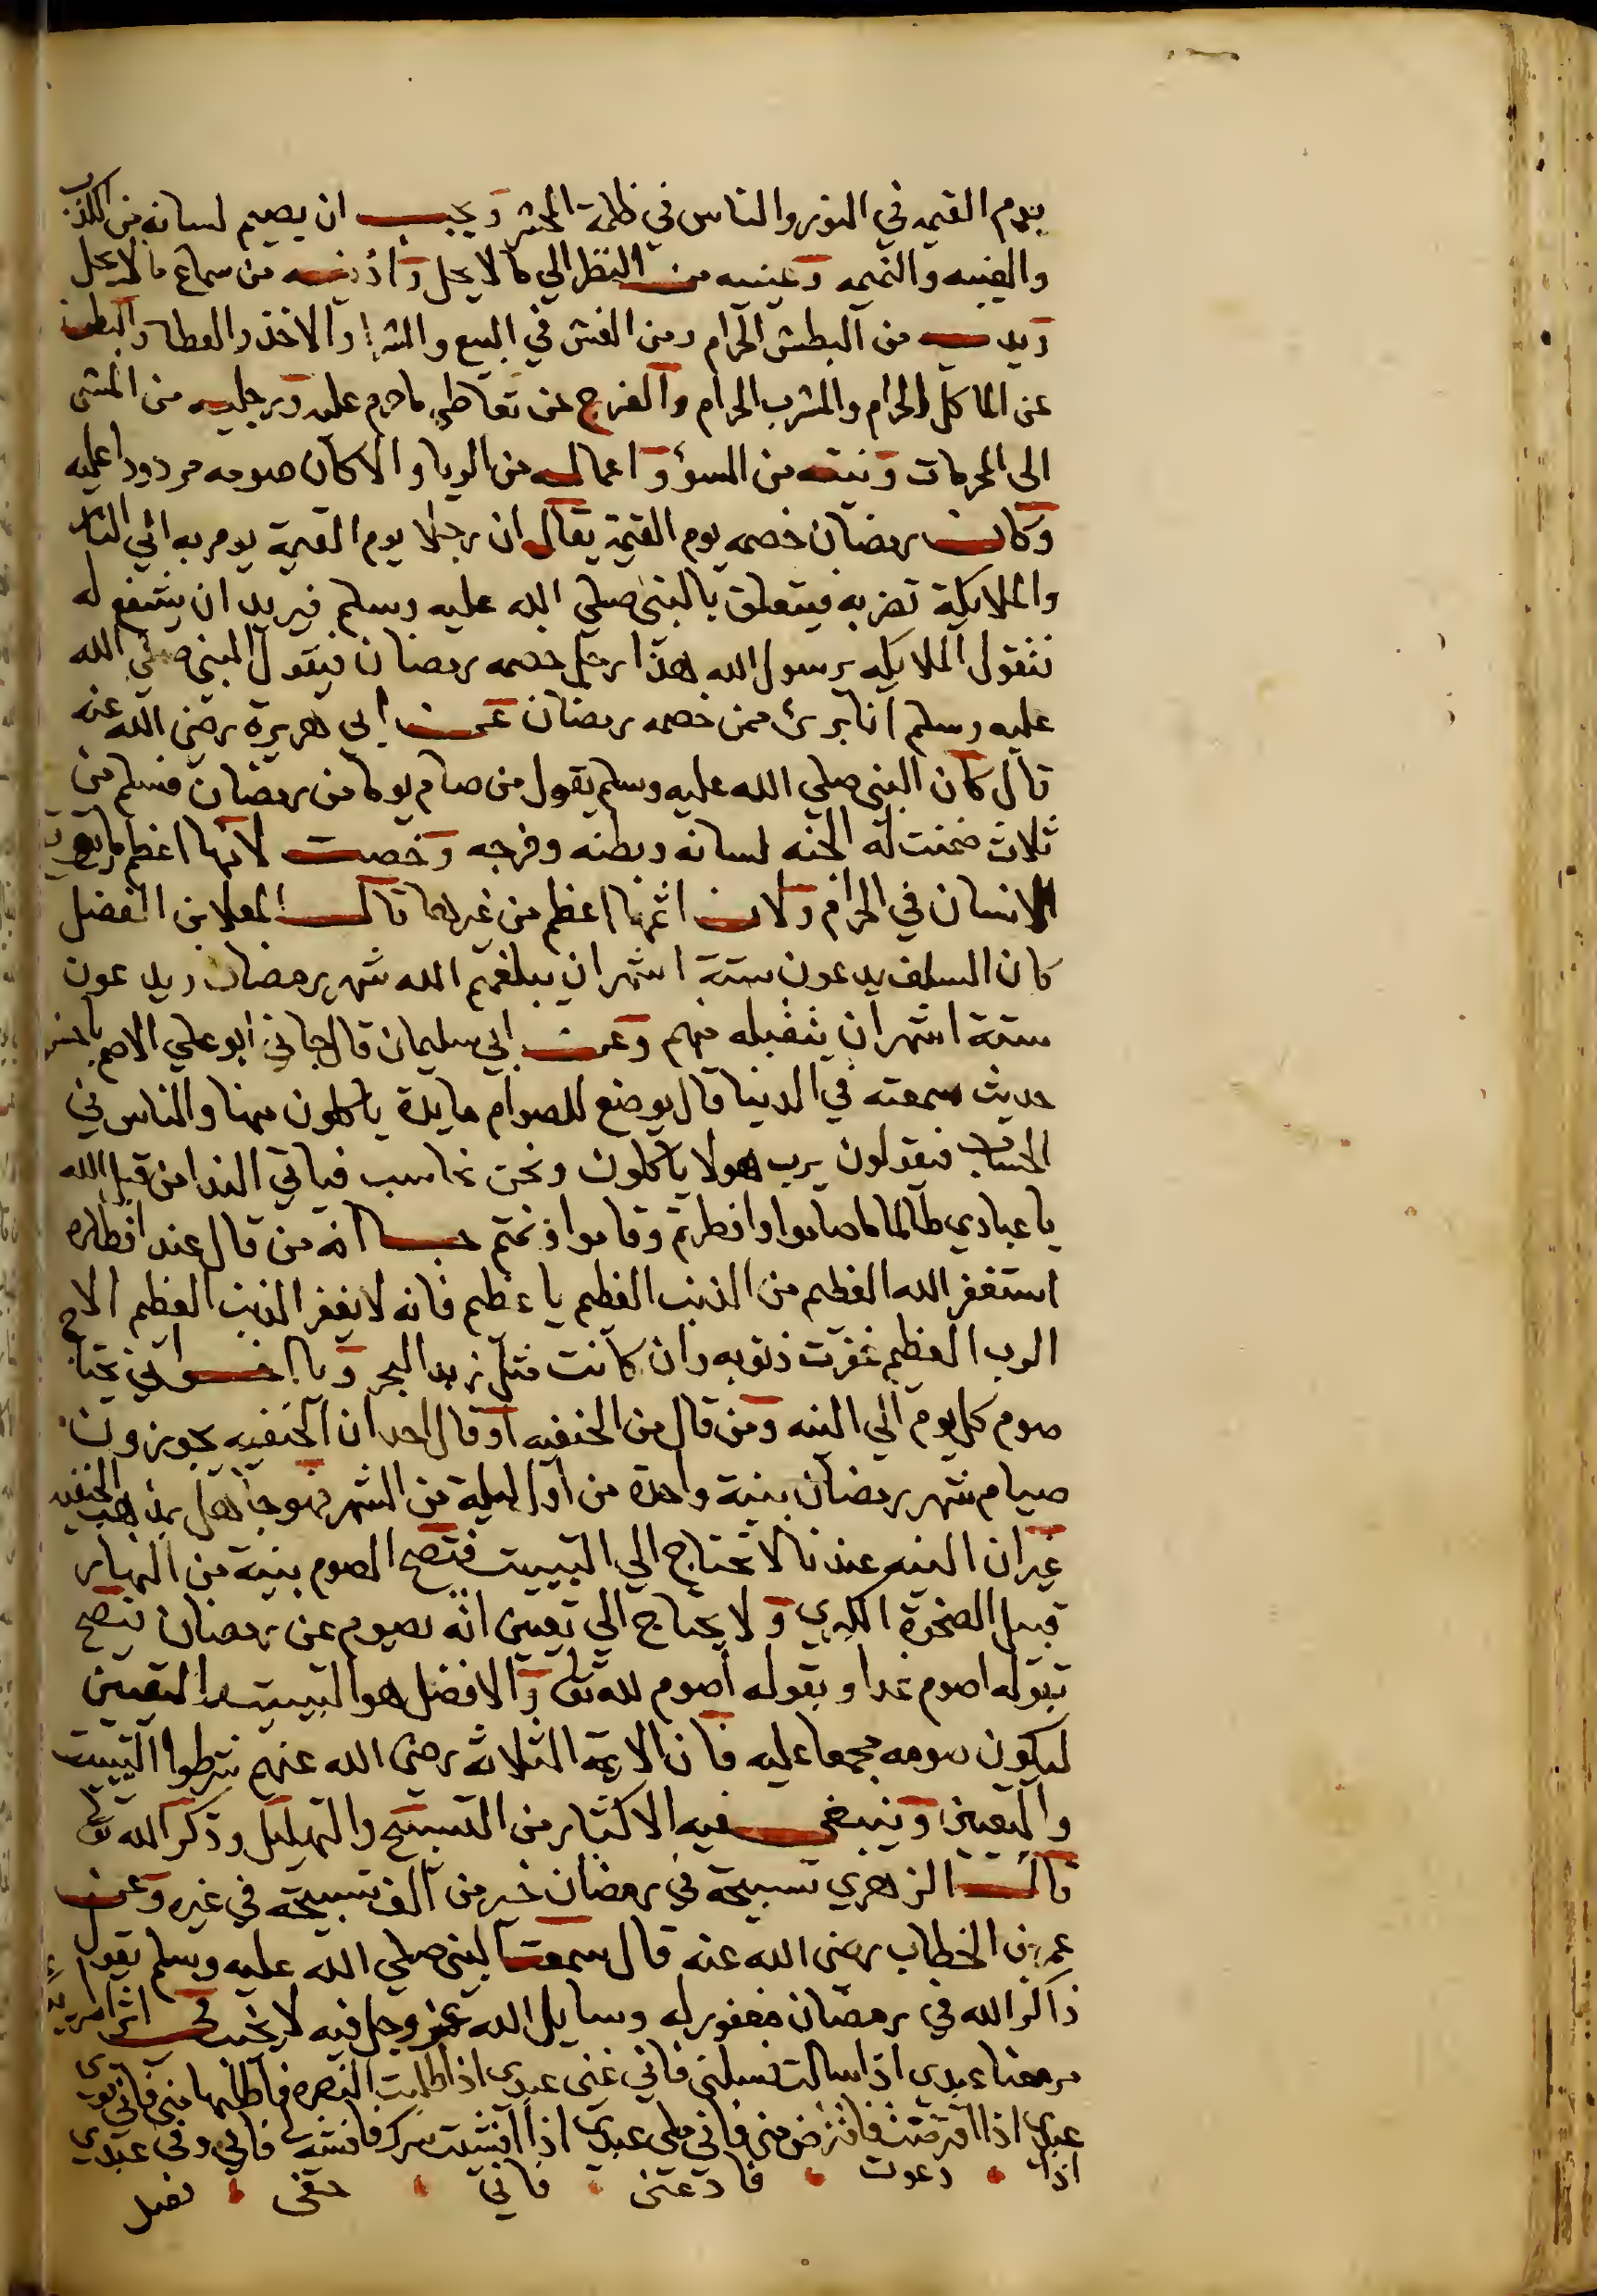 يوم القيمه في النور والناس في ظلمة المحشر ويجب ان يصيم لسانه من الكذب
والغيبه والنميمه وعينيه من النظر الي ما لا يحل واذنيه من سماع ما لا يحل
ويديه من البطش الحرام ومن الغش في البيع والشرا والاخذ والعطا والبطن
عن الماكل الحرام والمشرب الحرام والفرج عن تعاطي ما حرم عليه ورجليه من المشي
الى المحرمات ونيته من السوء واعماله من الريا والا كان صومه مردودا عليه
وكان رمضان خصمه يوم القيمة يقال ان رجلا يوم القيمة يومر به الي النار
والملايكة تضربه فيتعلق بالنبي صلي الله عليه وسلم فيريد ان يشفع له
فتقول الملايكه يرسول الله هذا رجل خصمه رمضان فيقول النبي صلي الله
عليه وسلم انا برئ ممن خصمه رمضان عن ابي هريرة رضي الله عنه
قال كان النبي صلي الله عليه وسلم يقول من صام يوما من رمضان فسلم من
ثلاث ضمنت له الجنه لسانه وبطنه وفرجه وخصت لانها اعظم ما يوقع
الانسان في الحرام ولان اثمها اعظم من غيرها قال المعلا بن الفضل
كان السلف يدعون ستة اشهر ان يبلغهم الله شهر رمضان ويدعون
ستة اشهر ان يتقبله منهم وعن ابي سليمان قال جاني ابو علي الاصم باحسن
حديث سمعته في الدنيا قال يوضع للصوام مايدة ياكلون منها والناس في
الحساب فيقولون يرب هولا ياكلون ونحن نحاسب فياتي الندا من قبل الله
يا عبادي طالما صاموا وافطرتم وقاموا ونمتم جا انه من قال عند افطاره
استغفر الله العظيم من الذنب العظيم يا عظيم فانه لا يغفر الذنب العظيم الا
الرب العظيم غفرت ذنوبه وان كانت مثل زبد البحر ويا اخواني يحتاج
صوم كل يوم الي النيه ومن قال من الحنفيه او قال احد ان الحنفيه يجوزون
صيام شهر رمضان بنية واحدة من اول ليلة من الشهر فهو جاهل بمذهب الحنفيه
غير ان النيه عندنا لا تحتاج الي التبييت فتصح الصوم بنية من النهار
قبيل الضحوة الكبري ولا يحتاج الي تعيين انه يصوم عن رمضان فتصح
بقوله اصوم غدا وبقوله اصوم لله تعالى والافضل هو التبييت والتعيين
ليكون صومه مجمعا عليه فان الايمة الثلاثة رضي الله عنهم شرطوا التبييت
والتعيين وينبغي فيه الاكثار من التسبيح والتهليل وذكر الله تعالى
قال الزهري تسبيحة في رمضان خير من الف تسبيحة في غيره وعن
عمر بن الخطاب رضي الله عنه قال سمعت النبي صلي الله عليه وسلم يقول
ذاكر الله في رمضان مغفور له وسايل الله عز وجل فيه لا يخيب
عبدي اذا سالت فسلني فاني غني عبدي اذا طلبت النصره فاطلبها مني فاني قوي
عبدي اذا اقرضت فاقرض مني فاني ملي عبدي اذا افشيت سرك فافشه لي فاني وفي عبدي
اذا دعوت فادعني فاني حفي